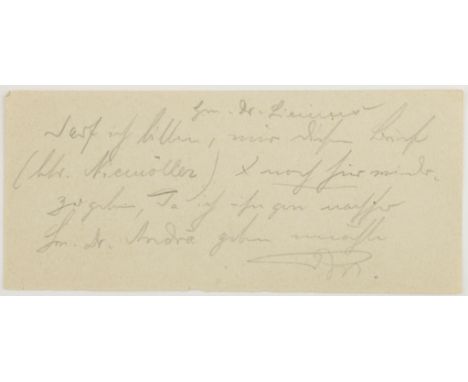 Hrn. Dr.
Darf ich bitten, mir diesen Brief
(btr. Niemöller) x noch hier wieder-
zugeben, da ich ihn gern nachher
Hrn. Dr. Andrä geben möchte